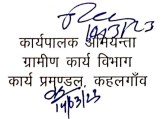 14/03/23
कार्यपालक अभियन्ता
ग्रामीण कार्य विभाग
कार्य प्रमण्डल, कहलगाँव
14/03/23